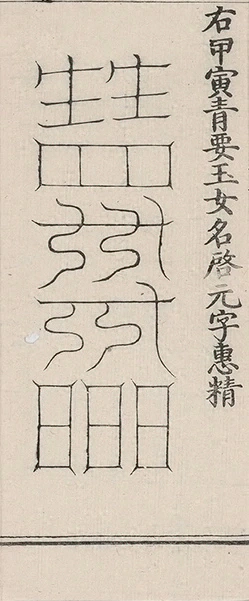 右甲寅青要玉女名啓元字惠精